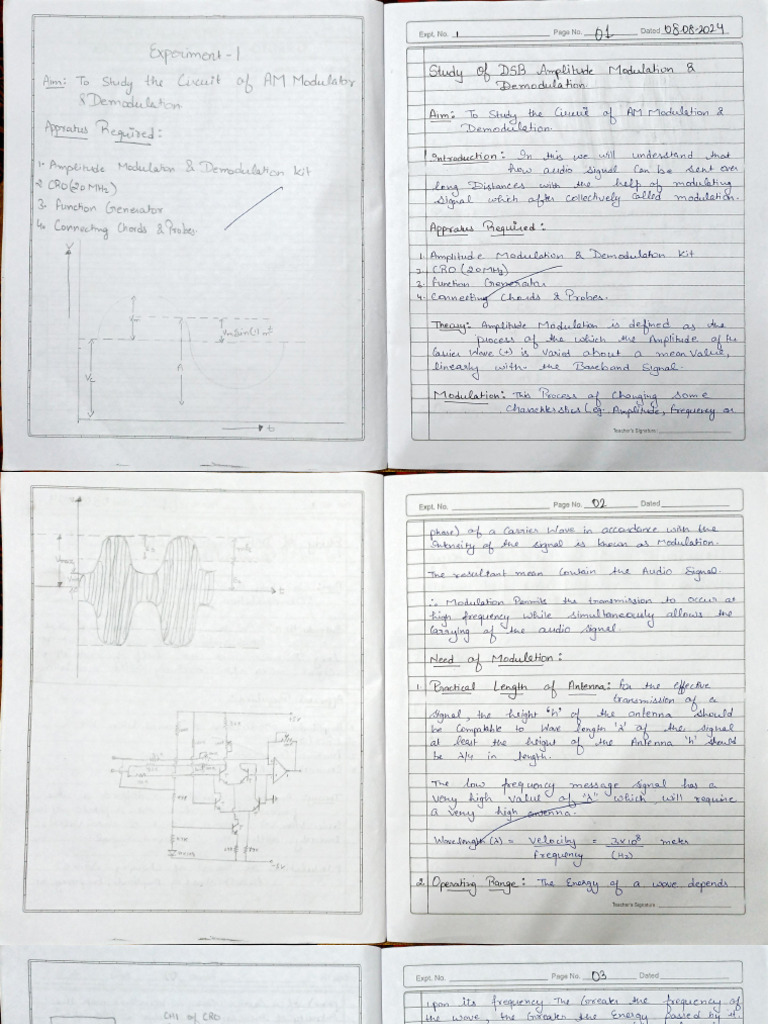 Experiment-1
Aim: To Study the Circuit of AM Modulator
& Demodulation
Appratus Required:
1. Amplitude Modulation & Demodulation Kit
2. CRO (20 MHz)
3. Function Generator
4. Connecting Chords & Probes.
Y
Vm
Vm Sin ωmt
Vc
A
t
Expt. No. 1 Page No. 01 Dated 08-08-2024
Study of DSB Amplitude Modulation &
Demodulation.
Aim: To Study the Circuit of AM Modulation &
Demodulation.
Introduction: In this we will understand that
how audio signal can be sent over
long Distances with the help of modulating
signal which after collectively called modulation.
Appratus Required:
1. Amplitude Modulation & Demodulation Kit
2. CRO (20MHz)
3. Function Generator
4. Connecting Chords & Probes.
Theory: Amplitude Modulation is defined as the
process of the which the Amplitude of the
Carrier Wave (+) is varied about a mean value,
linearly with the Baseband Signal.
Modulation: This Process of Changing some
Charactershics (eg. Amplitude, frequency or
Teacher's Signature
t
Expt. No. Page No. 02 Dated
phase) of a Carrier Wave in accordance with the
Intensity of the signal is known as Modulation.
The resultant mean Contain the Audio Signal.
∴ Modulation Permits the transmission to occur at
high frequency while simultaneously allows the
Carrying of the audio signal.
Need of Modulation:
1. Practical Length of Antenna: for the effective
transmission of a
signal, the height 'h' of the antenna should
be Compatable to Wave length 'λ' of the signal
at least the height of the Antenna 'h' should
be λ/4 in length.
The low frequency message signal has a
very high value of "λ" which will require
a very high antenna.
Wavelength (λ) = velocity / frequency = 3×10⁸ / (Hz) meter
2. Operating Range: The Energy of a wave depends
Teacher's Signature
CH1 of CRO
Expt. No. Page No. 03 Dated
upon its frequency. The Greater the frequency of
the wave, the Greater the Energy